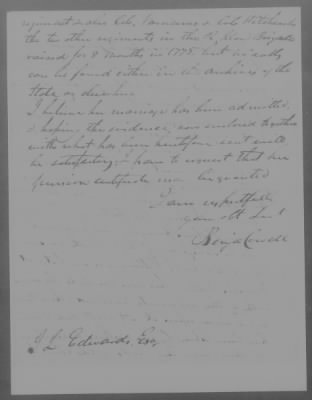 regiment & also Col. Varnums & Col. Hitchcocks
the two other regiments in the R. Island Brigade
raised for 8 months in 1775 but no rolls
can be found either in the archives of the
State or elsewhere
I believe her marriage has been admitted
& hoping the evidence now enclosed together
with what has been heretofore sent will
be satisfactory I have to request that her
pension certificate may be granted
I am respectfully
your obt Servt
Benj Cowell
J L Edwards, Esq